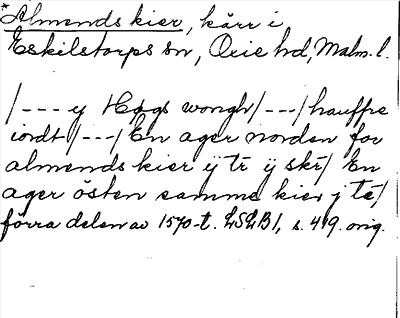 *Almendskier, kärr i
Eskilstorps sn, Oxie hd, Malm. l.
/--- y Høgs wongh/---/hauffre
iordt/---/ En ager norden for
almendskier ÿ tr ÿ skr/ En
ager östen samme kier j té/
förra delen av 1570-t. LSLB1, s. 419. orig.